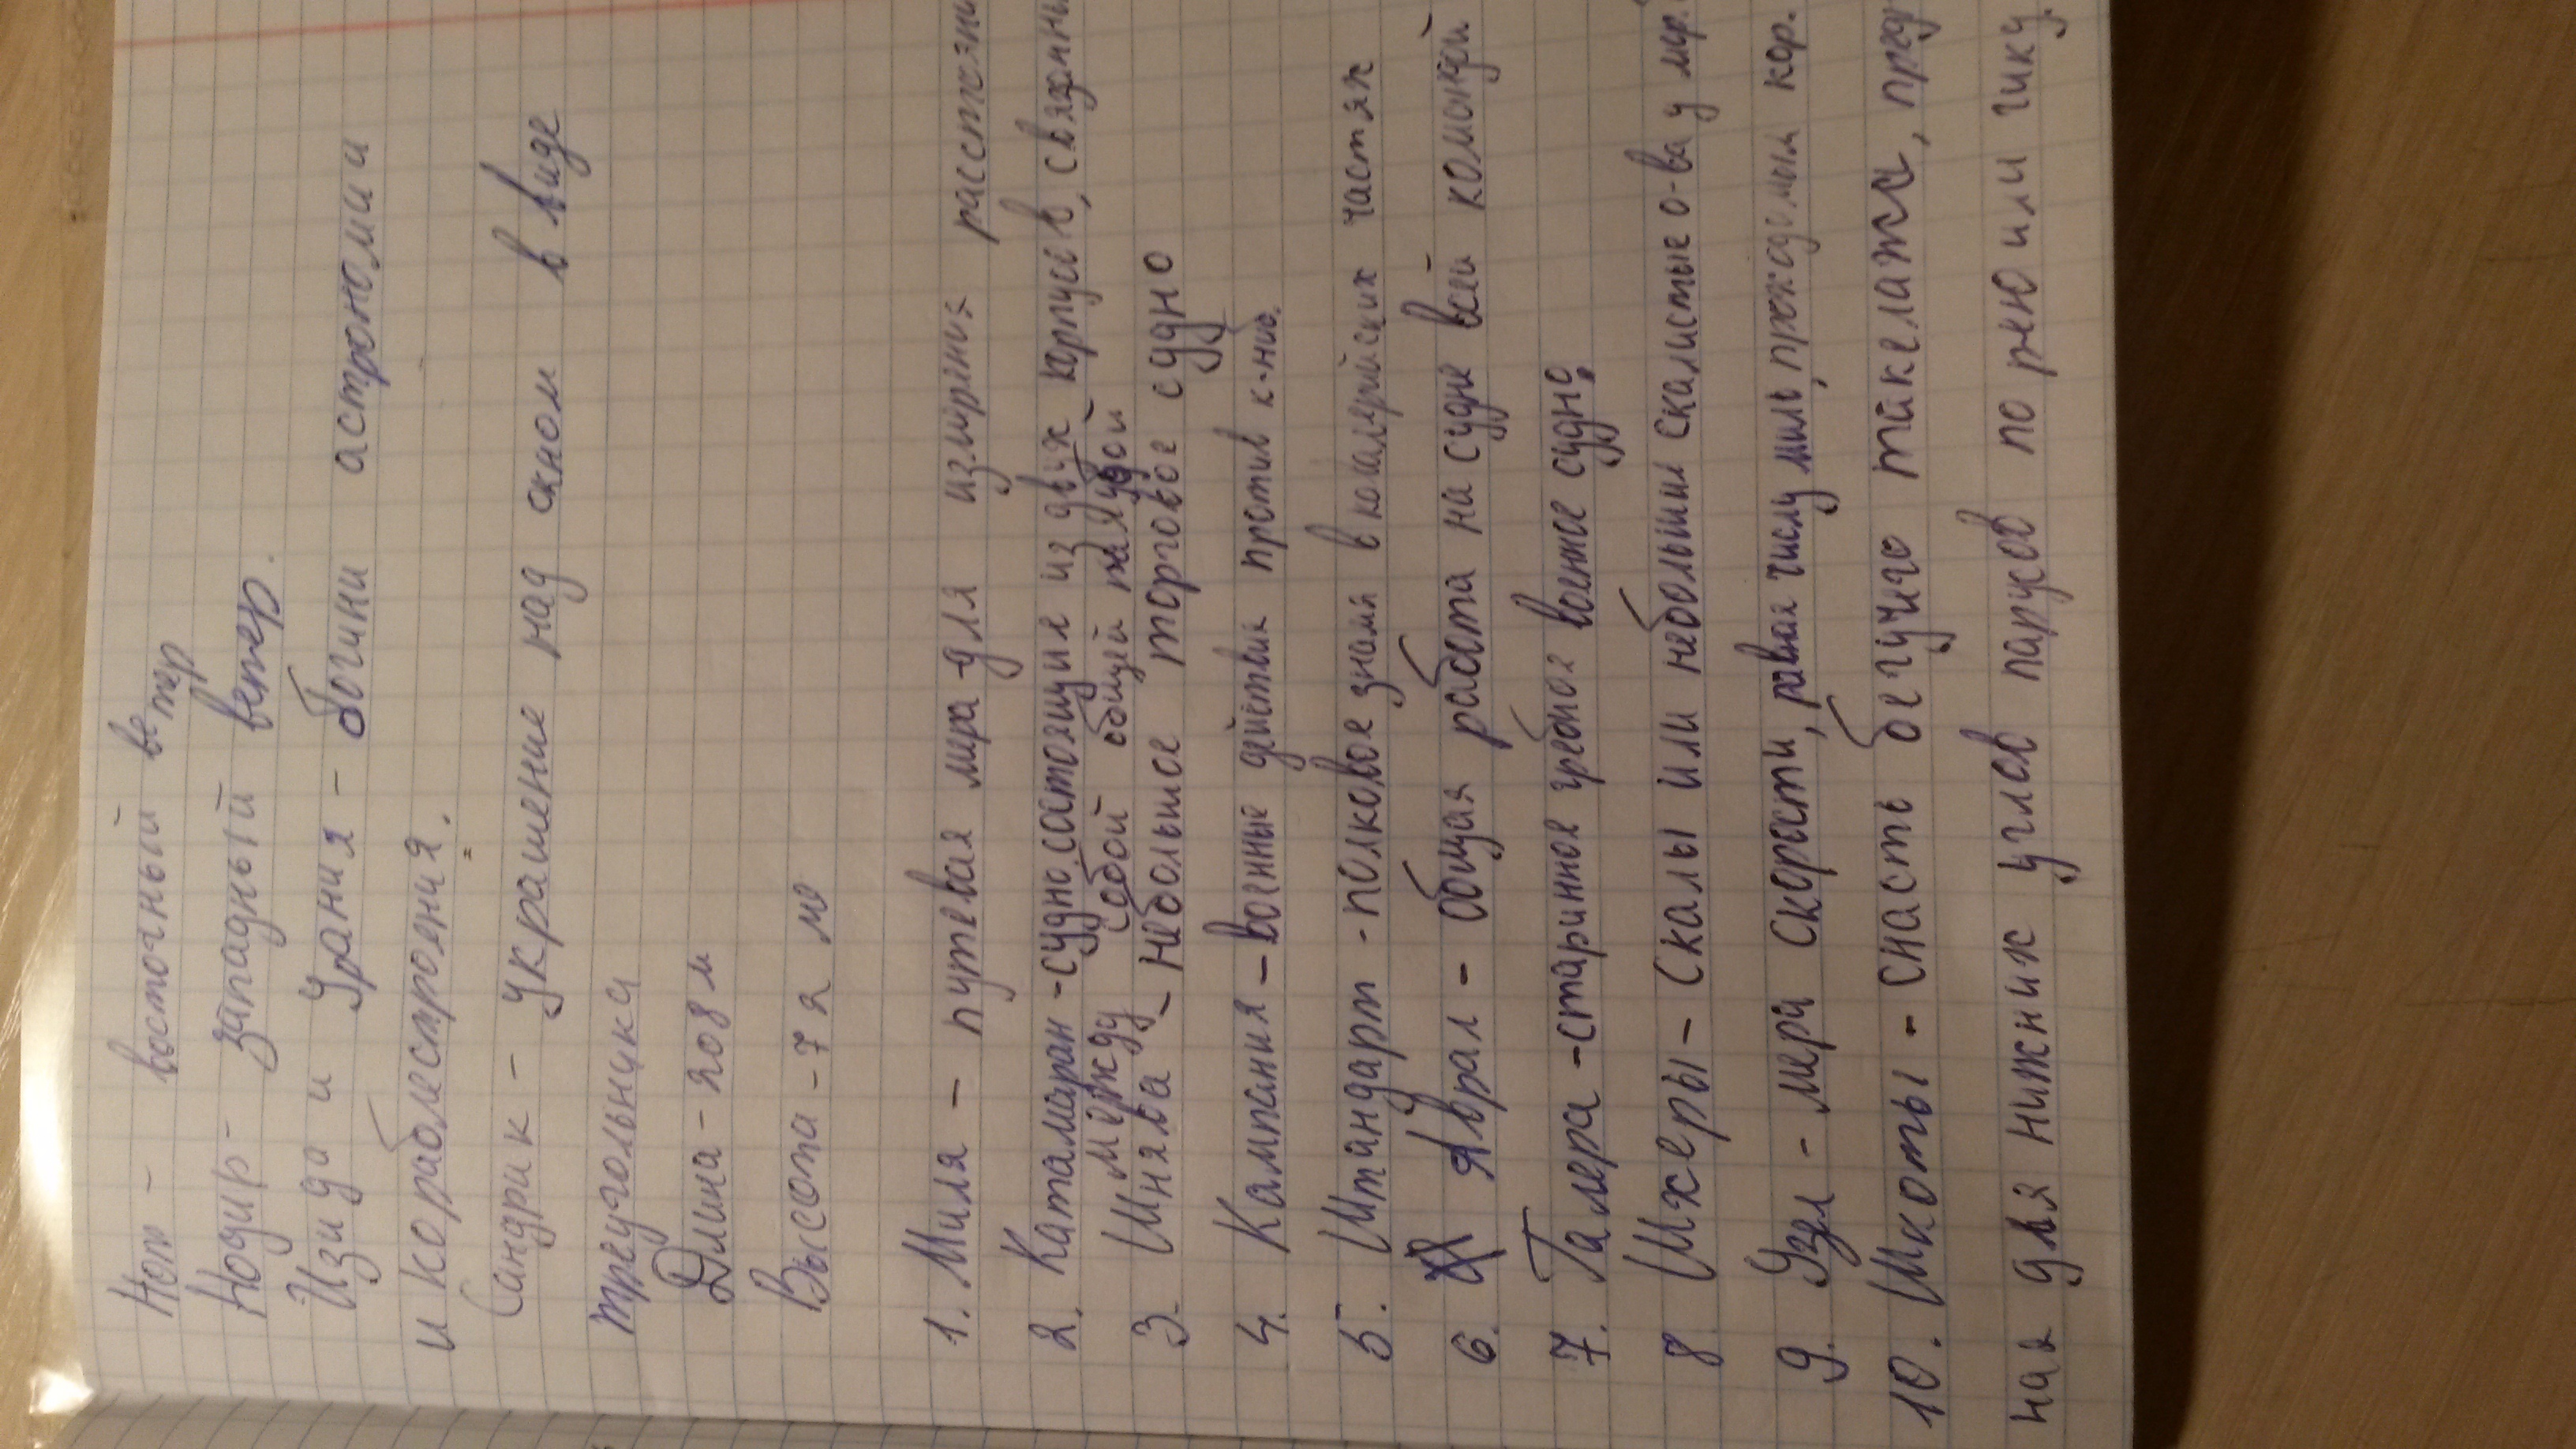 Нот - восточный ветер
Нодир - западный ветер.
Изида и Урания - богини астрономии
и кораблестроения.
Сандрик - украшение над окном в виде
треугольника
Длина - 208 м
Высота - 72 м
1. Миля - путевая мера для измерения
2. Катамаран - судно, состоящие из двух корпусов,
между собой общей палубой
3. Шнява - небольшое торговое судно
4. Кампания - военные действия против к-нибо.
5. Штандарт - полковое знамя в кавалерийских частях
6. Аврал - общая работа на судне всей командой
7. Галера - старинное гребное военное судно.
8 Шхеры - скалы или небольшии скалистые о-ва у
9. Узел - мера скорости, равная числу миль, проходимых кор.
10. Шкоты - снасть бегучего такелажа,
ная для нижних углов парусов по рею или гику.